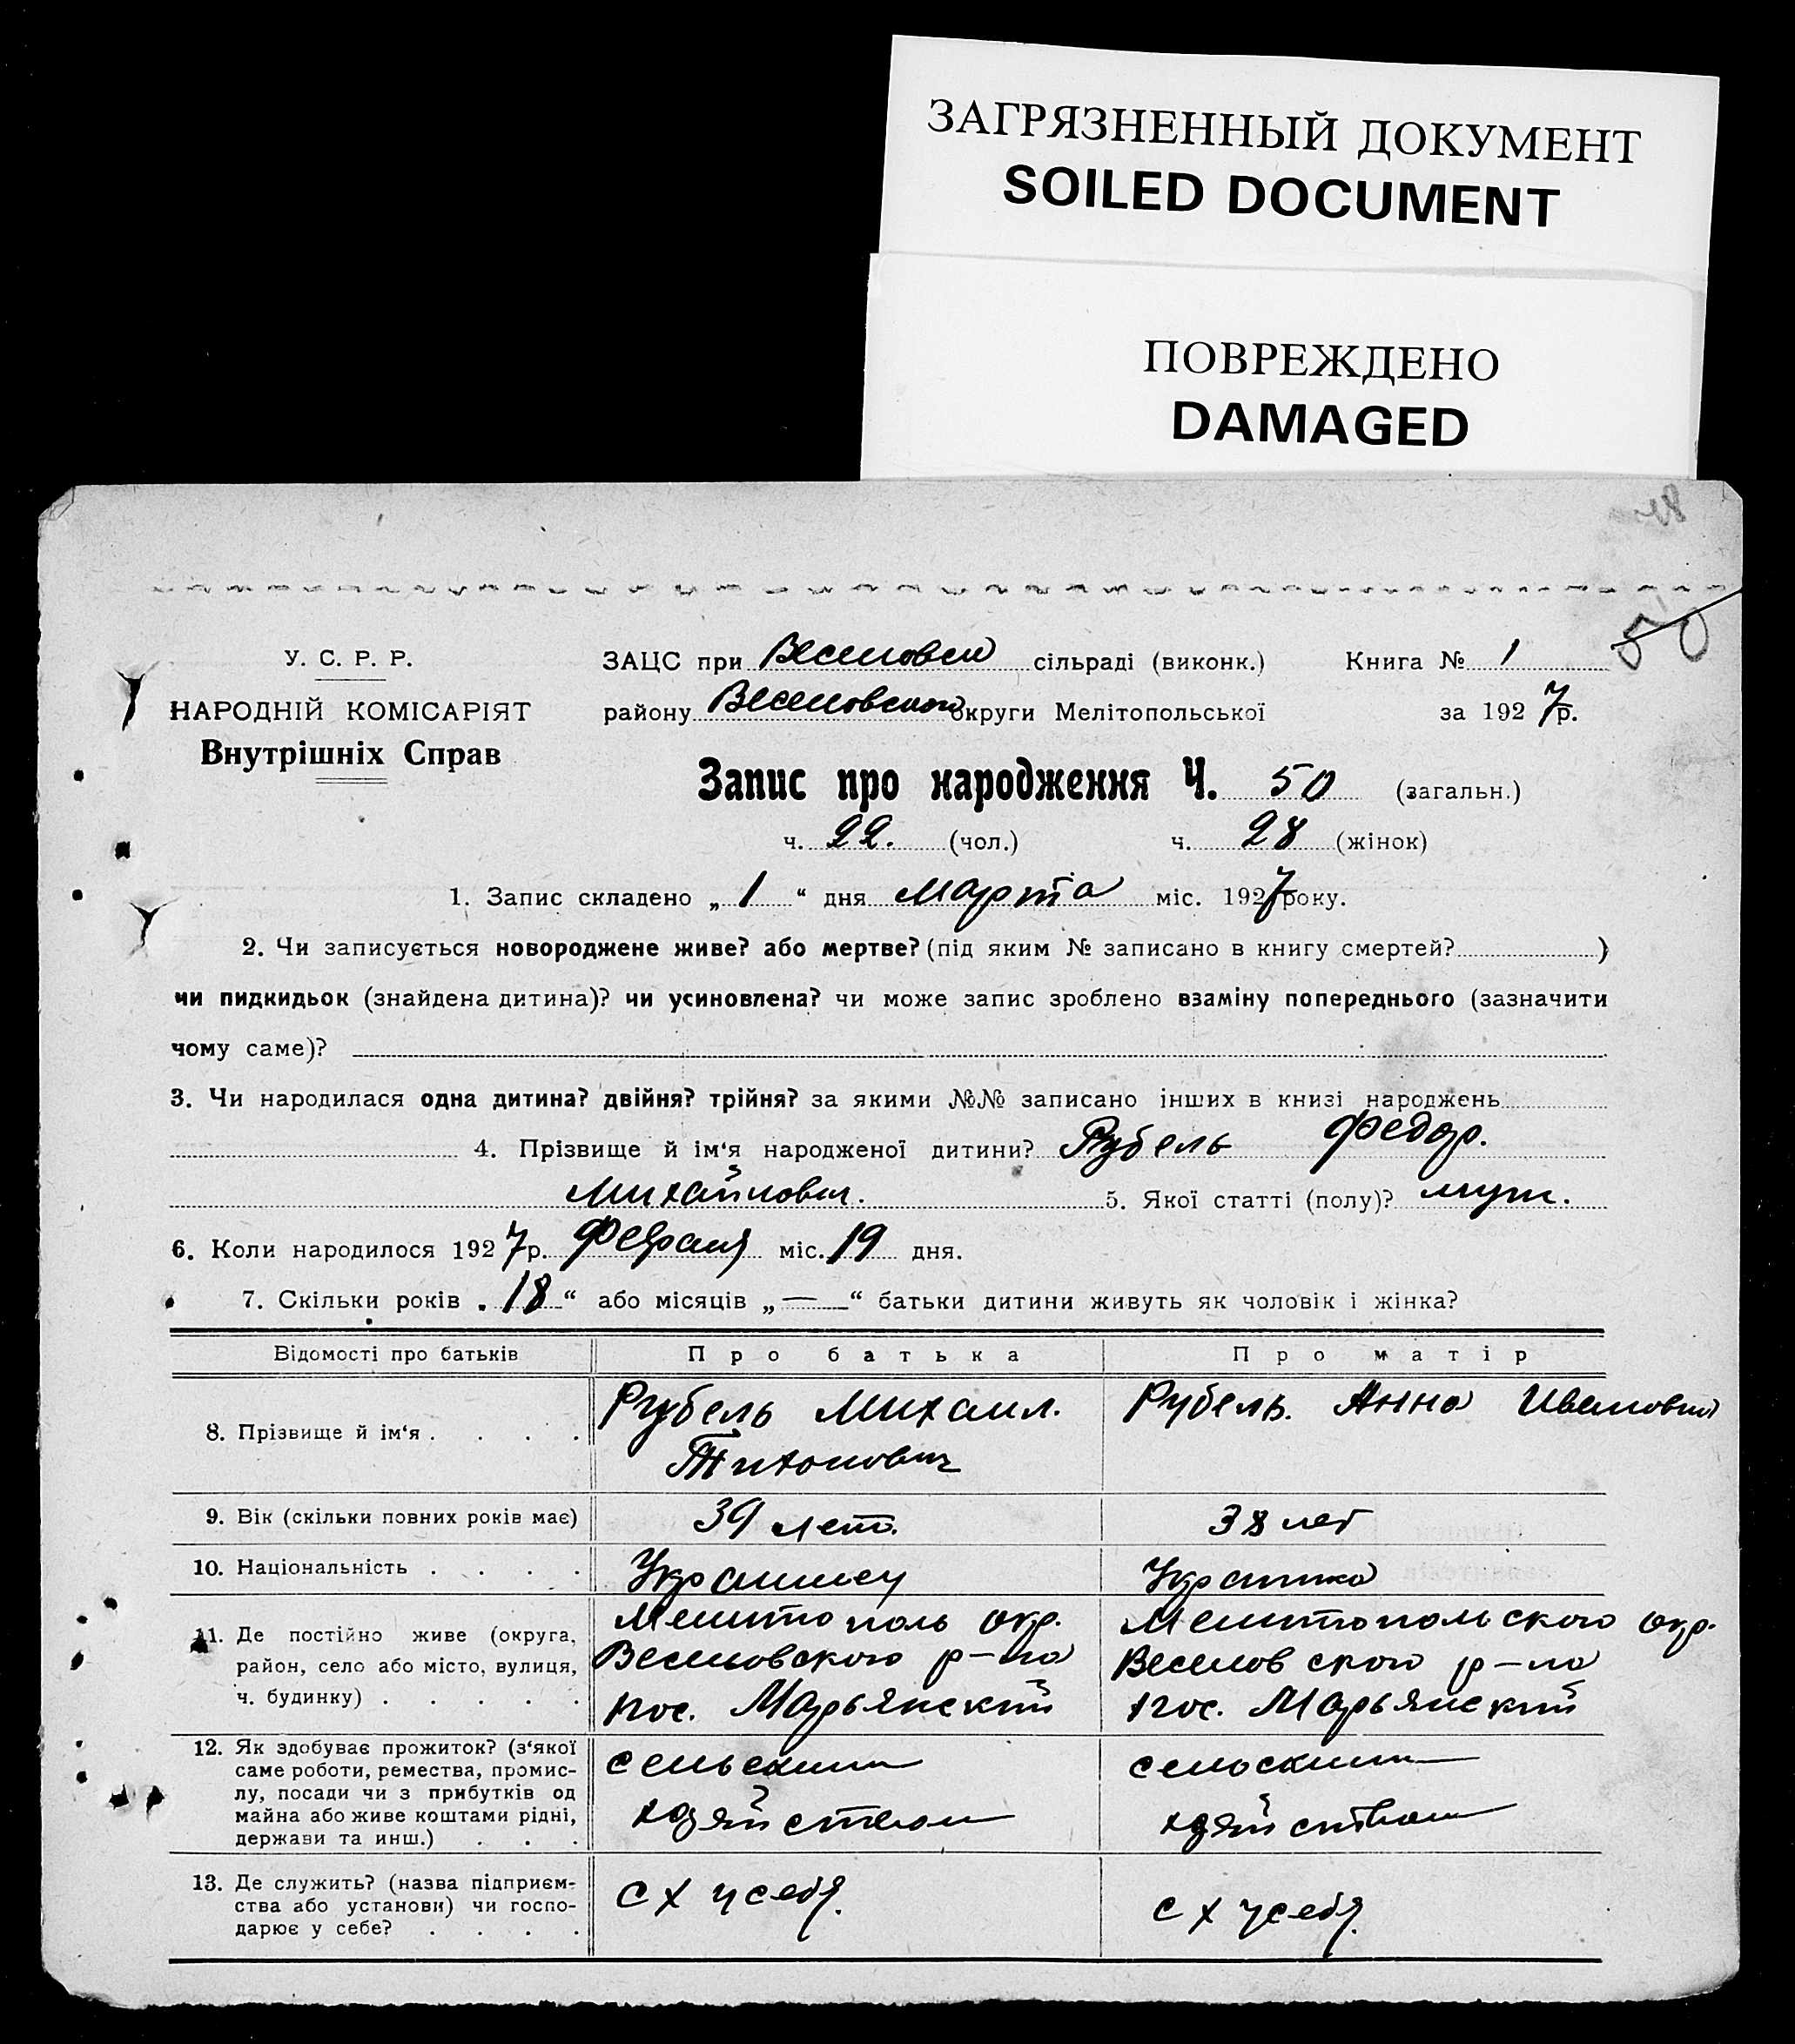 ЗАГРЯЗНЕННЫЙ ДОКУМЕНТ
SOILED DOCUMENT
ПОВРЕЖДЕНО
DAMAGED
50
У. С. Р. Р.
НАРОДНІЙ КОМІСАРІЯТ
Внутрішніх Справ
ЗАЦС при сільраді (виконк.) Книга № 1
району Веселовского округи Мелітопольської за 1927р.
Запис про народження Ч. 50 (загальн.)
ч. 22. (чол.) ч. 28 (жінок)
1. Запис складено „ 1 “ дня Марта міс. 1927 року.
2. Чи записується новороджене живе? або мертве? (під яким № записано в книгу смертей? )
чи пидкидьок (знайдена дитина)? чи усиновлена? чи може запис зроблено взаміну попереднього (зазначити
чому саме)?
3. Чи народилася одна дитина? двійня? трійня? за якими №№ записано інших в книзі народжень
4. Прізвище й ім‘я народженої дитини? Рубель Федор.
Михайлович. 5. Якої статті (полу)? муж.
6. Коли народилося 1927р. міс. 19 дня.
7. Скільки років „ 18 “ або місяців „ — “ батьки дитини живуть як чоловік і жінка?
Відомості про батьків Про батька Про матір
8. Прізвище й ім‘я . . . . Рубель Михаил. Тихонович Рубель. Анна Ивановна
9. Вік (скільки повних років має) 39 лет. 38 лет
10. Національність . . . . Украинец Украинка
11. Де постійно живе (округа,
район, село або місто, вулиця,
ч. будинку) . . . . .
Мелитополь окр. Мелитопольского окр.
Веселовского р-на Веселовского р-на
пос. Марьянский пос. Марьянский
12. Як здобуває прожиток? (з‘якої
саме роботи, ремества, промис-
лу, посади чи з прибутків од
майна або живе коштами рідні,
держави та инш.) . . .
сельским сельским
хозяйством хозяйством
13. Де служить? (назва підприєм-
ства або установи) чи госпо-
дарює у себе? . . . .
с х у себя. с х у себя.